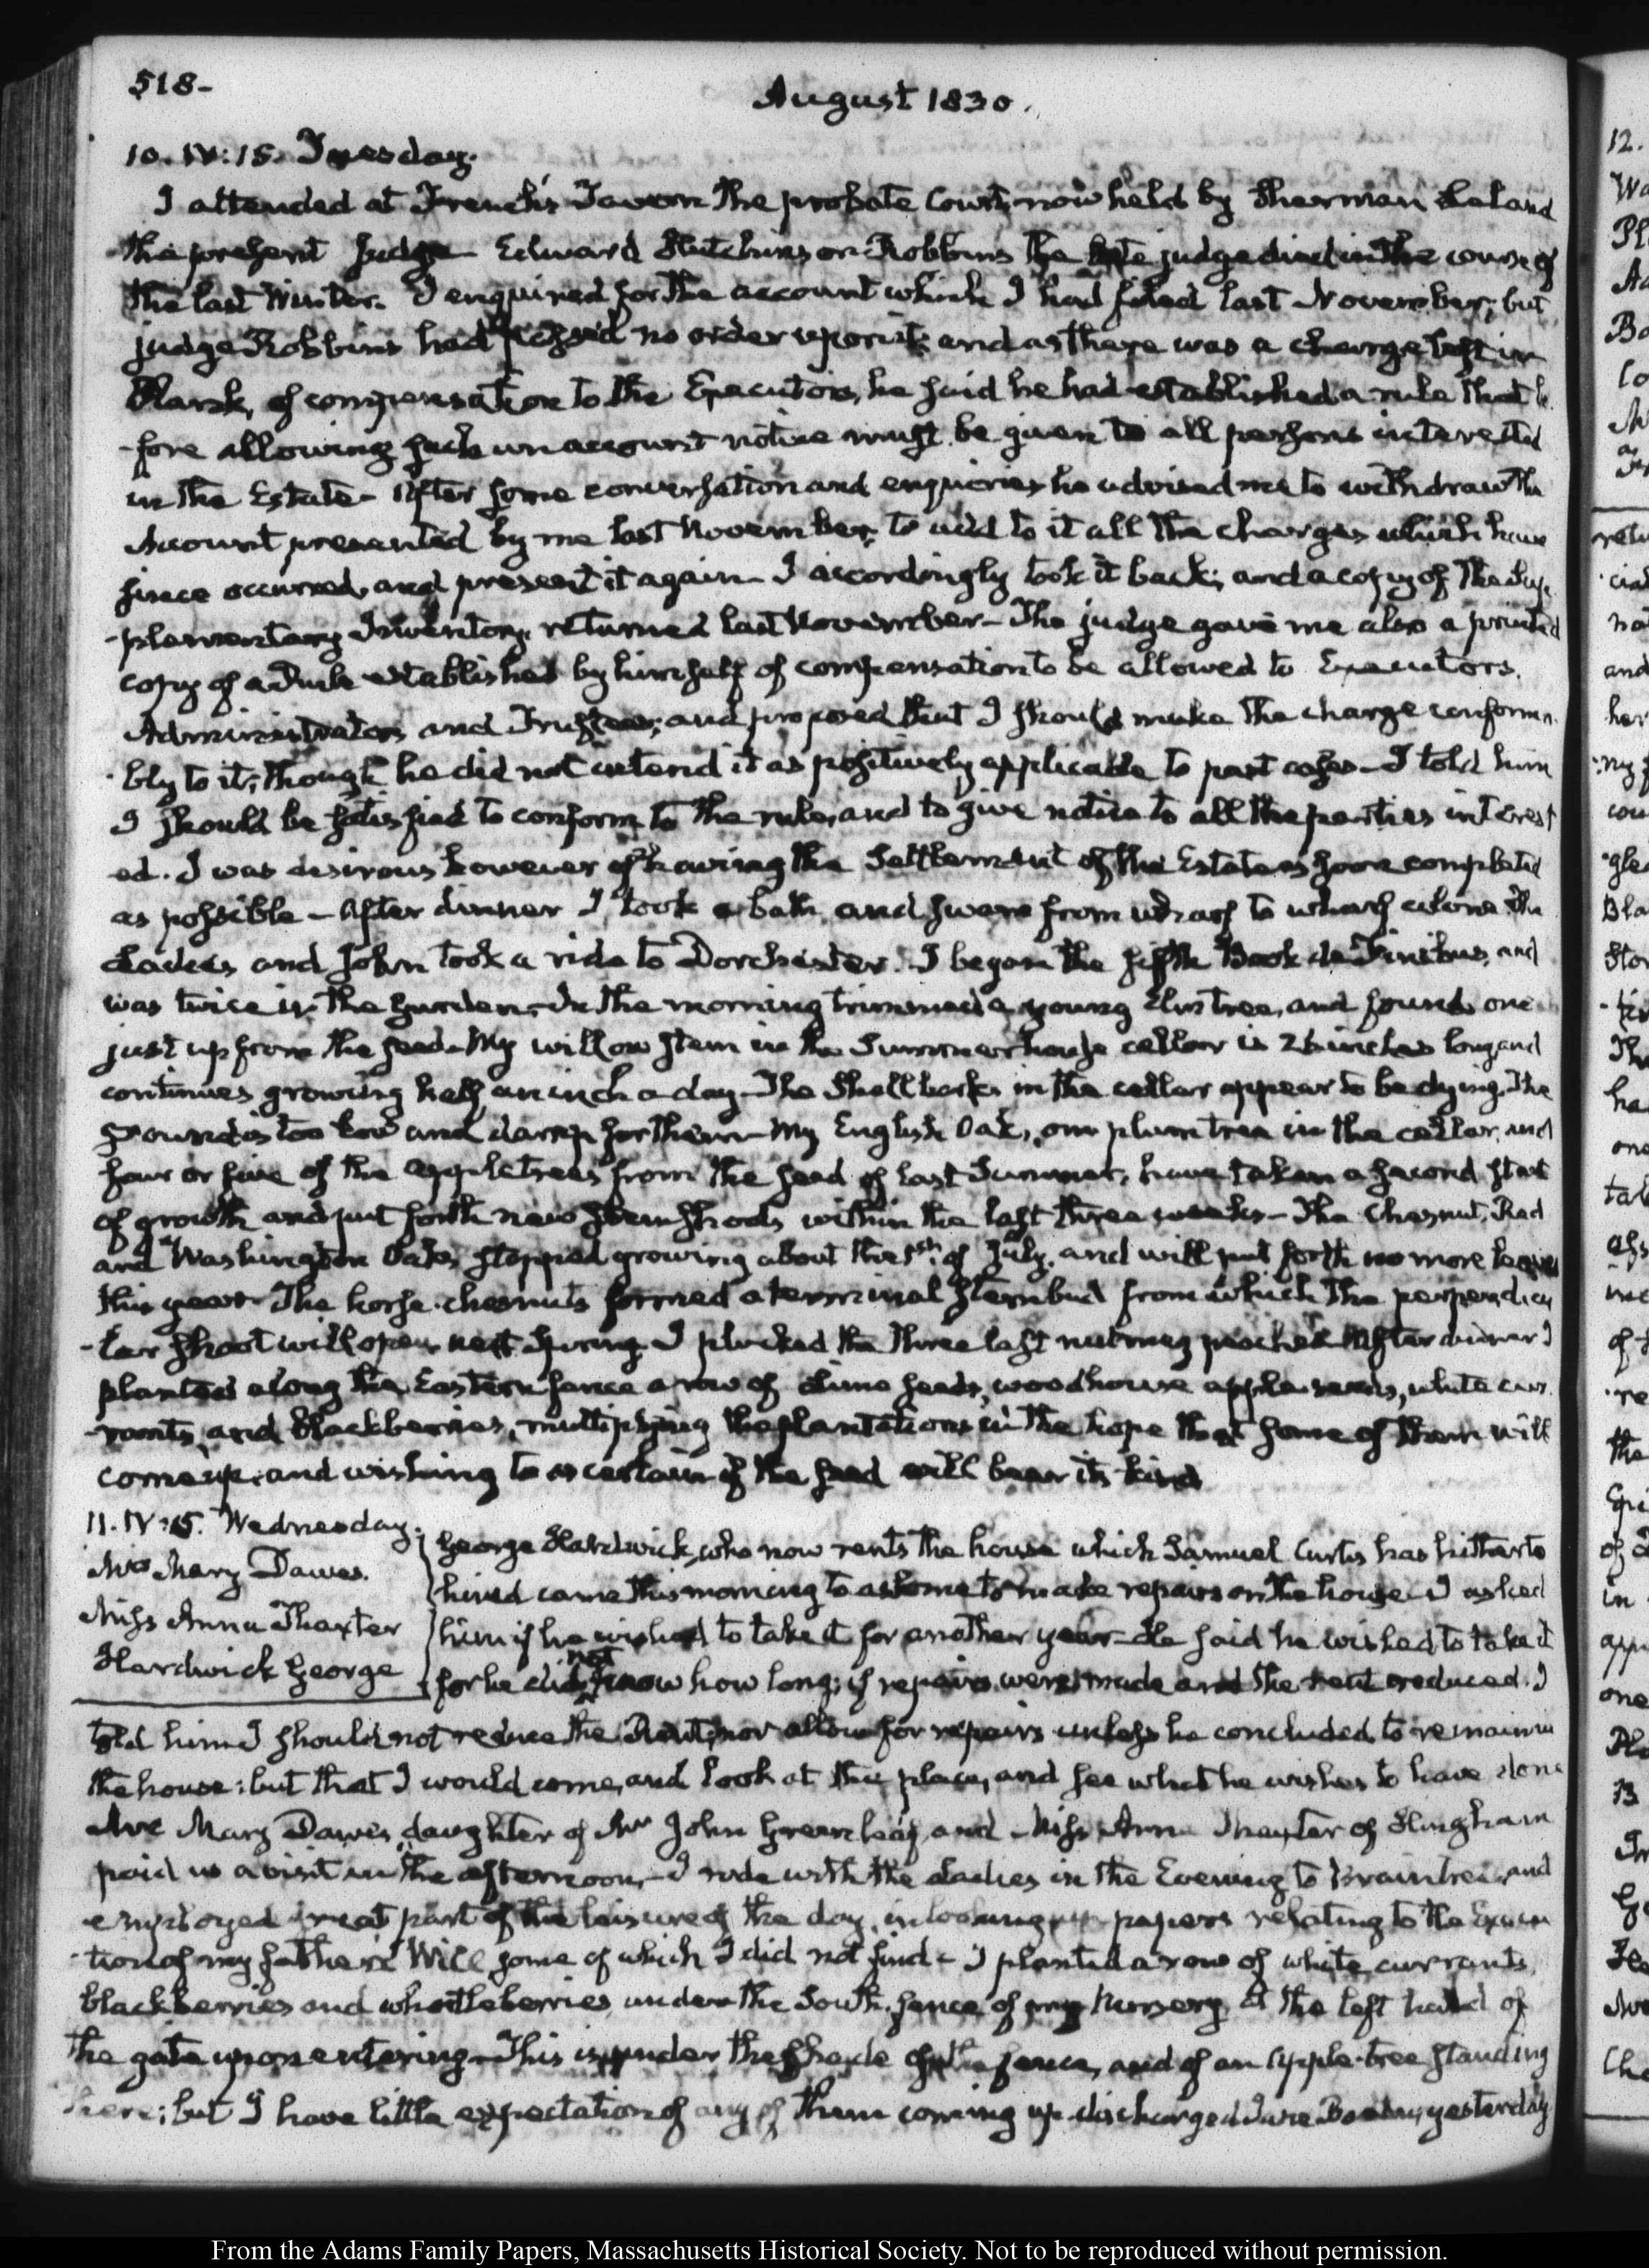 518-
August 1830.
10. IV:15. Tuesday.
I attended at French's Tavern the probate Court, now held by Sherman Leland
the present Judge Edward Hutchinson Robbins the late judge died in the course of
the last Winter. I enquired for the account which I had filed last November; but
judge Robbins had passed no order upon it; and as there was a charge left in
blank, of compensation to the Executors, he said he had established a rule that be
-fore allowing such an account notice must be given to all persons interested
in the Estate- After some conversation and enquiries he advised me to withdraw the
Account presented by me last November, to add to it all the charges which have
since occurred, and present it again- I accordingly took it back; and a copy of the Sup-
-plementary Inventory, returned last November- The judge gave me also a printed
copy of a rule established by himself of compensation to be allowed to Executors.
Administrators and Trustees; and proposed that I should make the charge conforma-
-bly to it; though he did not intend it as positively applicable to past cases- I told him
I should be satisfied to conform to the rule, and to give notice to all the parties interest
ed. I was desirous however of having the Settlement of the Estate as soon completed
as possible- After dinner I took a bath, and swam from wharf to wharf alone. The
Ladies and John took a ride to Dorchester. I began the fifth Book de Finibus, and
was twice in the Garden. In the morning trimmed a young Elm tree, and found one
just up from the seed. My willow stem in the Summerhouse cellar is 26 inches long and
continues growing half an inch a day- The Shellbarks in the cellar appear to be dying. The
ground is too low and damp for them- My English Oak, one plum tree in the cellar, and
four or five of the apple trees from the seed of last Summer, have taken a second start
of growth and put forth new stem shoots within the last three weeks- The Chesnut, Red
and Washington Oaks stopped growing about the 5th. of July, and will put forth no more leaves
this year- The horse-chesnuts formed a terminal stem bud from which the perpendicu
-lar shoot will open next Spring. I plucked the three last nutmeg peaches. After dinner I
planted along the Eastern fence a row of Lime seeds, woodhouse apple seeds, white cur-
-rants, and blackberries, multiplying the plantations in the hope that some of them will
come up; and wishing to ascertain if the seed will bear its kind
11. IV:15. Wednesday.
Mrs Mary Dawes.
Miss Anna Thaxter
Hardwick George
George Hardwick, who now rents the house which Samuel Curtis has hitherto
hired came this morning to ask me to make repairs on the house- I asked
him if he wished to take it for another year- He said he wished to take it
for he did not know how long; if repairs were made and the rent reduced. I
told him I should not reduce the Rent, nor allow for repairs unless he concluded to remain in
the house: but that I would come, and look at the place, and see what he wishes to have done
Mrs Mary Dawes, daughter of Mr John Greenleaf, and Miss Anna Thaxter of Hingham
paid us a visit in the afternoon- I rode with the Ladies in the Evening to Braintree, and
employed great part of the leisure of the day, in looking up papers relating to the Execu
-tion of my father's Will some of which I did not find- I planted a row of white currants,
blackberries and whortleberries, under the South fence of my Nursery, at the left hand of
the gate upon entering- This is under the shade of the fence, and of an Apple-tree standing
here; but I have little expectation of any of them coming up- discharged yesterday